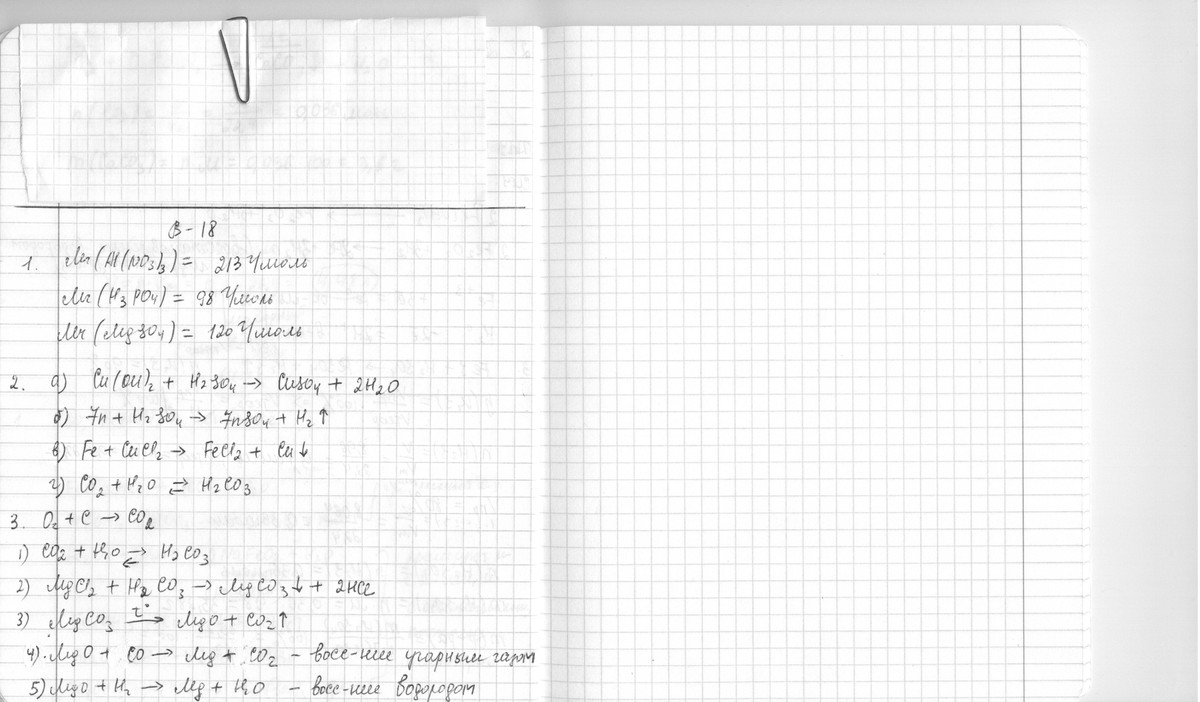 В-18
1. Mr(Al(NO3)3) = 213 г/моль
Mr(H3PO4) = 98 г/моль
Mr(MgSO4) = 120 г/моль
2. а) Cu(OH)2 + H2SO4 → CuSO4 + 2H2O
б) Zn + H2SO4 → ZnSO4 + H2↑
в) Fe + CuCl2 → FeCl2 + Cu↓
г) CO2 + H2O ⇄ H2CO3
3. O2 + C → CO2
1) CO2 + H2O ⇄ H2CO3
2) MgCl2 + H2CO3 → MgCO3↓ + 2HCl
3) MgCO3 t°→ MgO + CO2↑
4) MgO + CO → Mg + CO2 – восс-ние угарным газом
5) MgO + H2 → Mg + H2O – восс-ние водородом